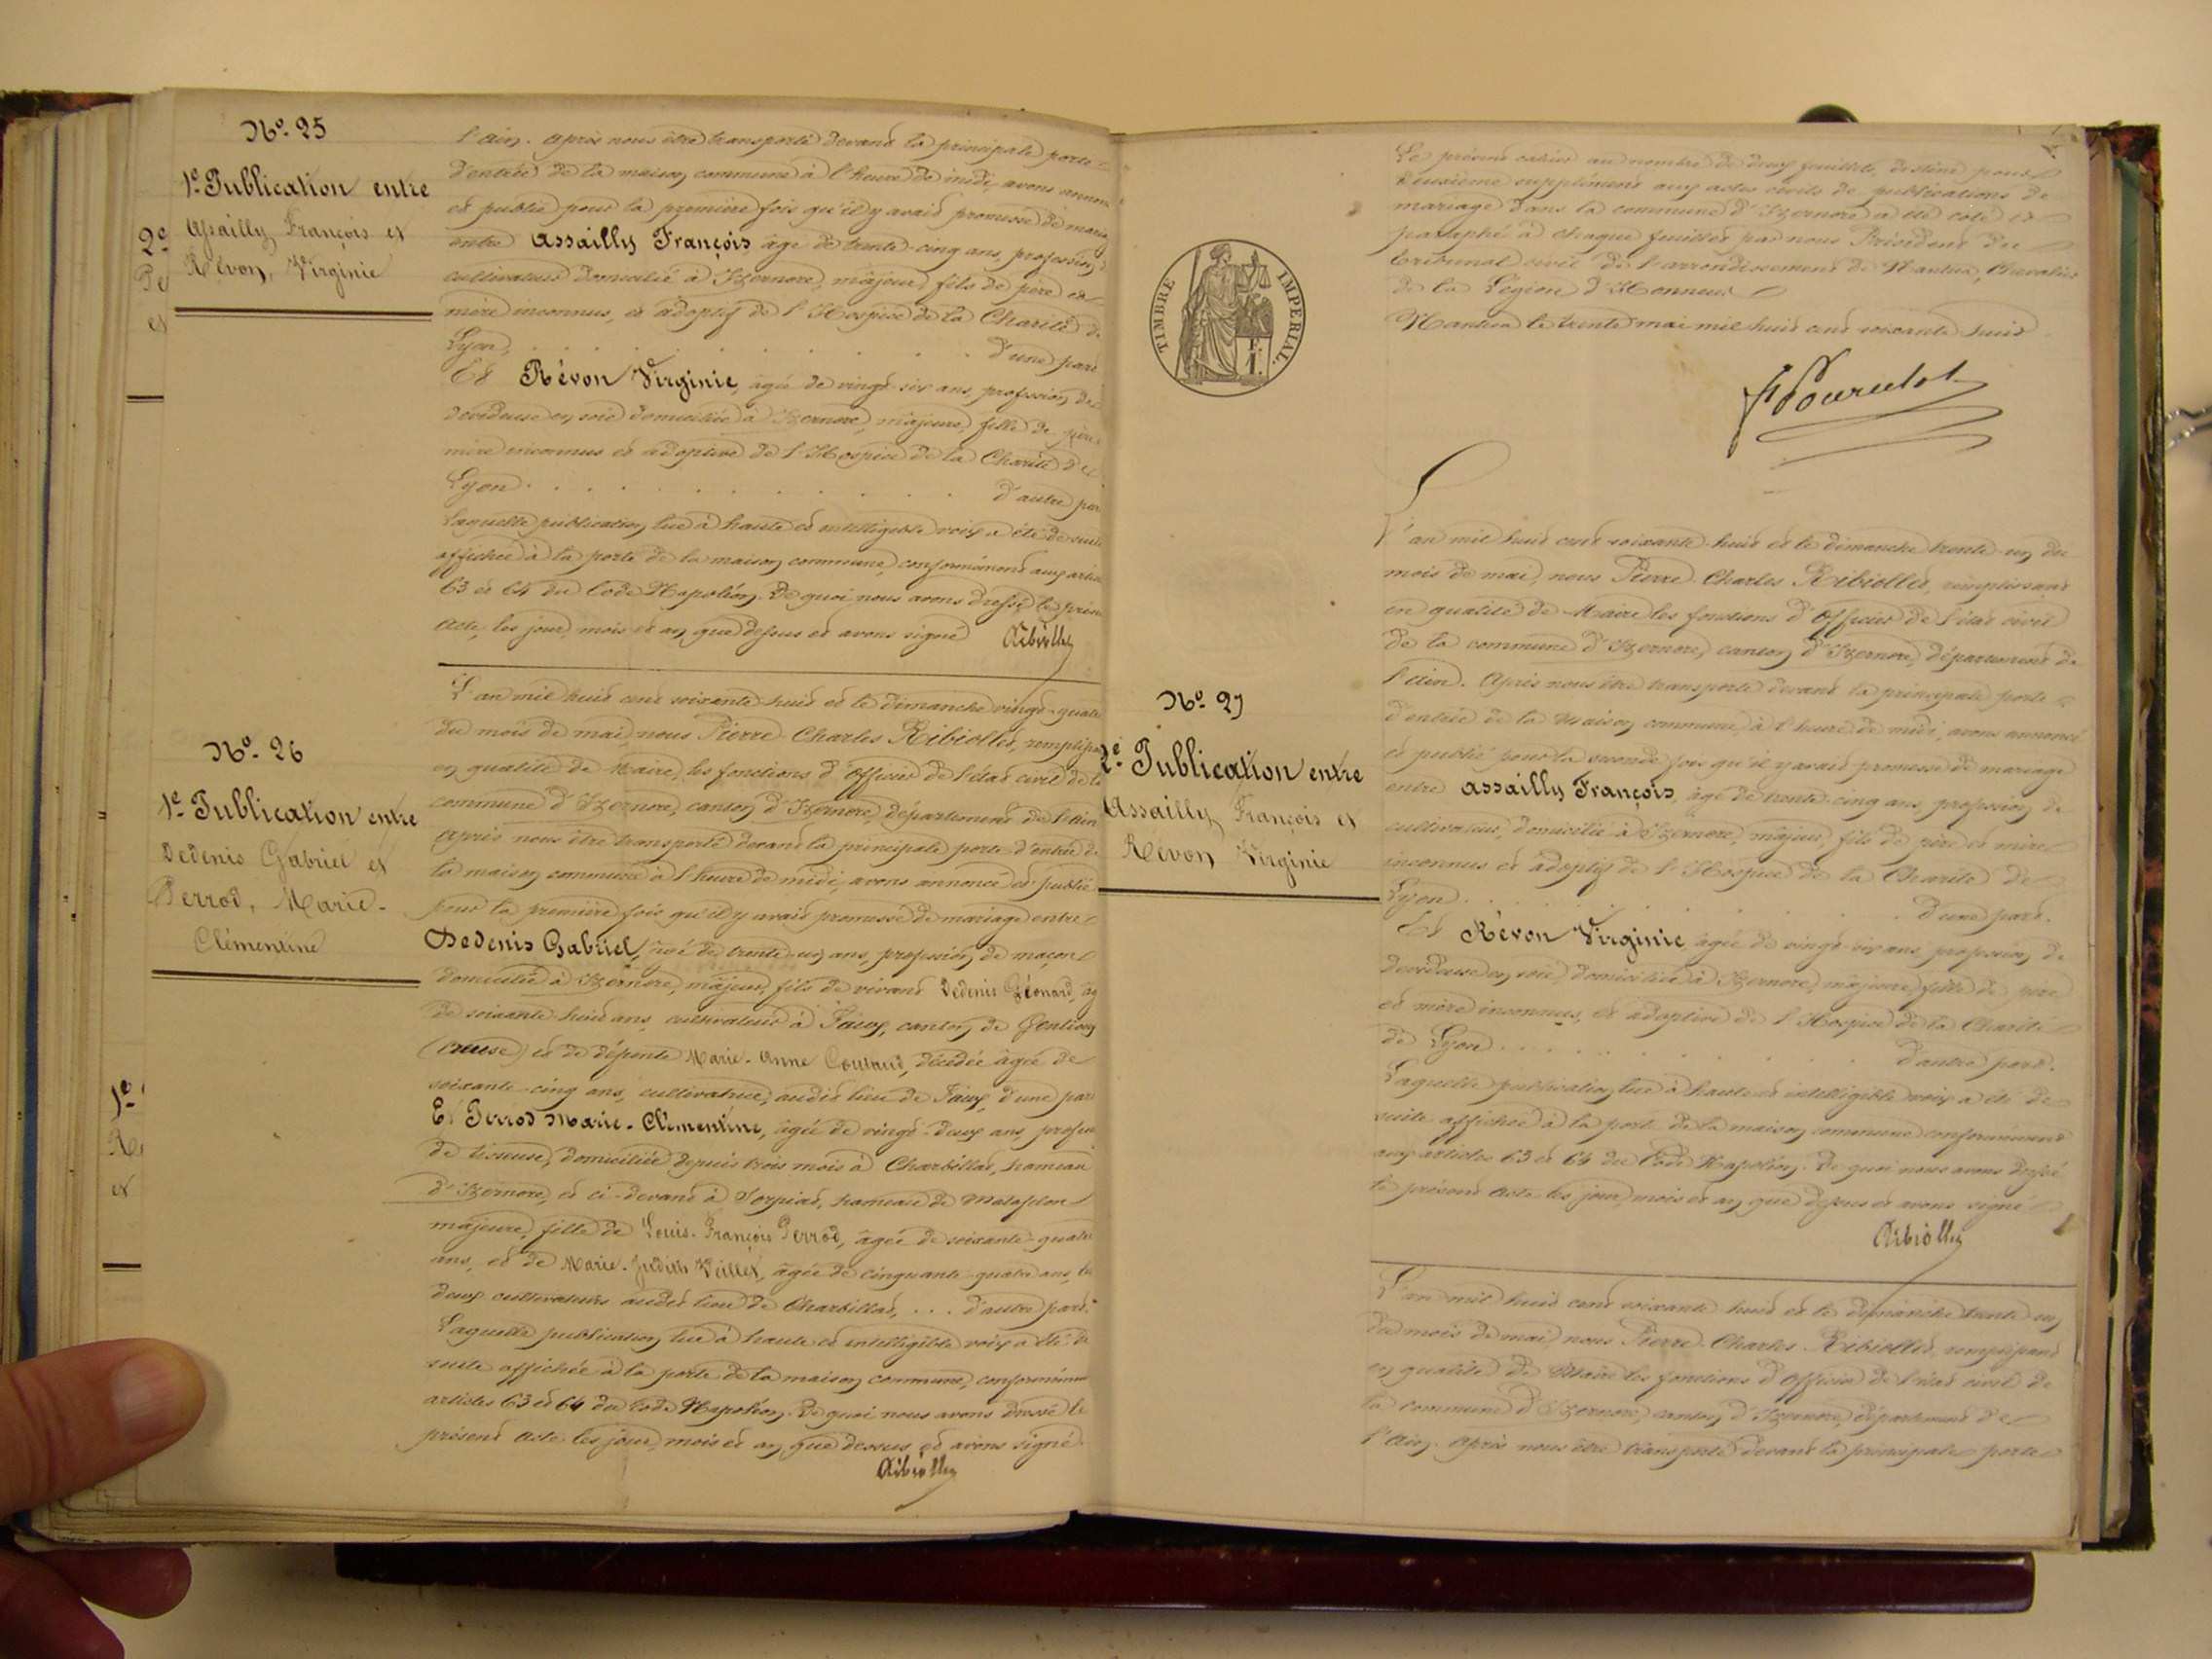 No. 25
1e. Publication entre
Assailly François et
Révon, Virginie
l'Ain. Après nous être transporté devant la principale porte
d'entrée de la maison commune à l'heure de midi avons annon
et publié pour la première fois qu'il y avait promesse de maria
entre Assailly François âgé de trente-cinq ans, profession d
cultivateur domicilié à Izernore, majeur, fils de père et
mère inconnus, et adoptif de l'Hospice de la Charité de
Lyon, . . . . . . . . . . d'une part
Et Révon Virginie, âgée de vingt-six ans, profession de
dévideuse en soie domiciliée à Izernore, majeure, fille de père
mère inconnus et adoptive de l'Hospice de la Charité de
Lyon . . . . . . . . . . d'autre par
Laquelle publication lue à haute et intelligible voix a été de suite
affichée à la porte de la maison commune, conformément aux artic
63 et 64 du Code Napoléon. De quoi nous avons dressé le prés
acte, les jour, mois et an que dessus et avons signé Ribiollet
No. 26
1e. Publication entre
Dedenis Gabriel et
Perrod, Marie-
Clémentine
L'an mil huit cent soixante-huit et le dimanche vingt-quatr
du mois de mai, nous Pierre-Charles Ribiollet, remplissa
en qualité de Maire, les fonctions d'officier de l'état civil de la
commune d'Izernore, canton d'Izernore, département de l'Ain
Après nous être transporté devant la principale porte d'entrée de
la maison commune à l'heure de midi, avons annoncé et publié
pour la première fois qu'il y avait promesse de mariage entre
Dedenis Gabriel, âgé de trente-un ans, profession de maçon
domicilié à Izernore, majeur, fils de vivant Dedenis Léonard, âg
de soixante-huit ans, cultivateur à Faux, canton de Gentioux
(Creuse) et de défunte Marie-Anne Coutaud, décédée âgée de
soixante-cinq ans, cultivatrice, audit lieu de Faux, d'une part
Et Perrod Marie-Clémentine, âgée de vingt-deux ans, profess
de tisseuse, domiciliée depuis trois mois à Charbillat, hameau
d'Izernore, et ci-devant à Sorpiat, hameau de Matafelon
majeure, fille de Louis-François Perrod, âgée de soixante-quatre
ans, et de Marie-Judith Veillet, âgée de cinquante-quatre ans, les
deux cultivateurs audit lieu de Charbillat, . . . d'autre part.
Laquelle publication lue à haute et intelligible voix a été de
suite affichée à la porte de la maison commune, conformément
articles 63 et 64 du Code Napoléon. De quoi nous avons dressé le
présent acte les jour, mois et an que dessus et avons signé.
Ribiollet
TIMBRE IMPERIAL.
Le présent cahier au nombre de deux feuillets, destiné pour
deuxième supplément aux actes civils de publications de
mariage dans la commune d'Izernore a été coté et
paraphé à chaque feuillet par nous Président du
tribunal civil de l'arrondissement de Nantua, Chevalier
de la Légion d'Honneur
Nantua le trente mai mil huit cent soixante huit
No. 27
2e. Publication entre
Assailly François et
Révon Virginie
L'an mil huit cent soixante-huit et le dimanche trente-un du
mois de mai, nous Pierre-Charles Ribiollet, remplissant
en qualité de Maire les fonctions d'Officier de l'état civil
de la commune d'Izernore, canton d'Izernore, département de
l'Ain. Après nous être transporté devant la principale porte
d'entrée de la maison commune, à l'heure de midi, avons annoncé
et publié pour la seconde fois qu'il y avait promesse de mariage
entre Assailly François, âgé de trente-cinq ans, profession de
cultivateur, domicilié à Izernore, majeur, fils de père et mère
inconnus et adoptif de l'Hospice de la Charité de
Lyon. . . . . . . . . . d'une part.
Et Révon Virginie âgée de vingt-six ans, profession de
dévideuse en soie, domiciliée à Izernore, majeure, fille de père
et mère inconnus, et adoptive de l'Hospice de la Charité
de Lyon . . . . . . . . . . d'autre part.
Laquelle publication lue à haute et intelligible voix a été de
suite affichée à la porte de la maison commune conformément
aux articles 63 et 64 du Code Napoléon. De quoi nous avons dressé
le présent acte les jour, mois et an que dessus et avons signé
Ribiollet
L'an mil huit cent soixante-huit et le dimanche trente-un
du mois de mai, nous Pierre-Charles Ribiollet, remplissant
en qualité de Maire les fonctions d'Officier de l'état civil de
la commune d'Izernore, canton d'Izernore, département de
l'Ain. Après nous être transporté devant la principale porte